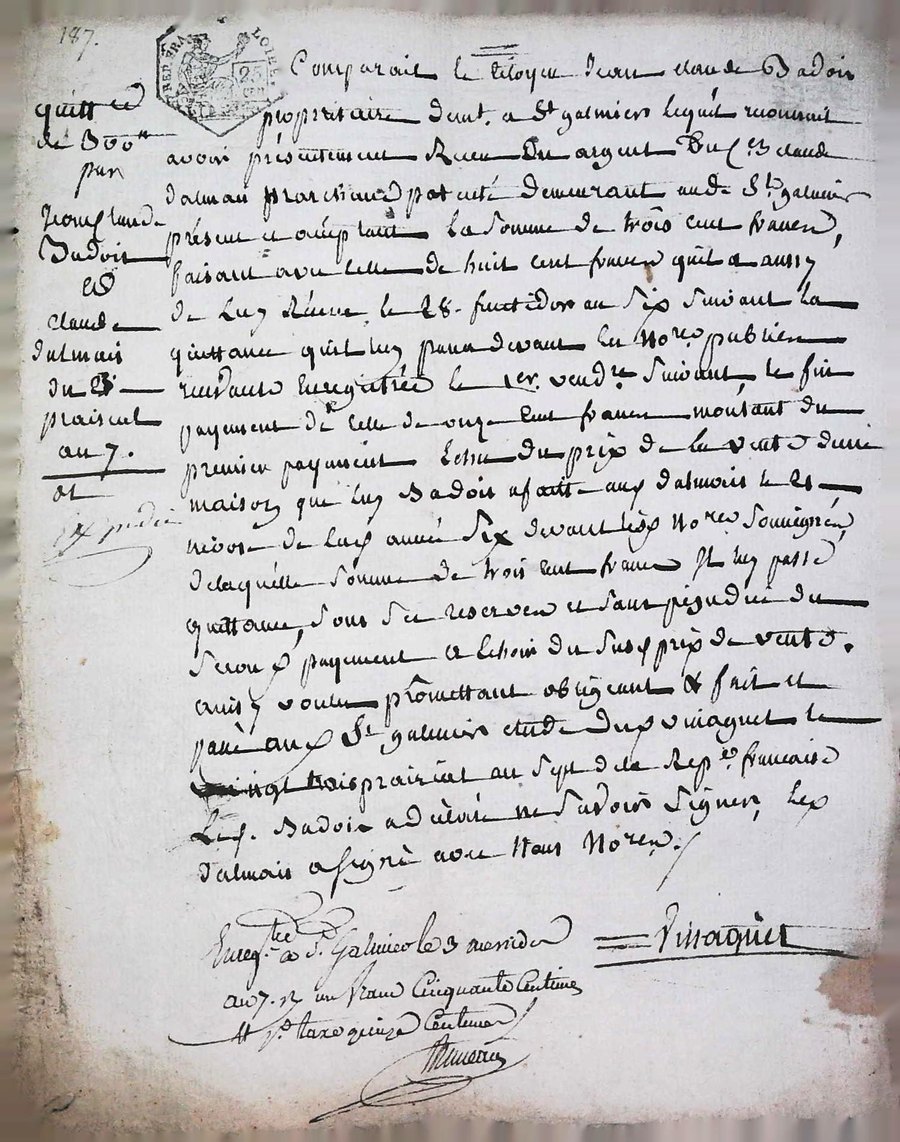 187.
REP. FRA
LOIRE
25
quitt.ce
de 300
par
Jean Claude
Badoit
et
Claude
dalmais
du 23
prairial
an 7.
expédié
Comparait le Citoyen Jean Claude Badoit
propriétaire demt. a St galmier lequel reconnait
avoir présentement Receu En argent Du C.en Claude
dalmais marchand patenté demeurant aud. St galmier
présent et acceptant La Somme de trois cent francs,
faisant avec Celle de huit cent francs qu'il a aussy
de Luy Réceue le 28. fructidor an Six Suivant la
quittance qu'il luy passa devant les Nore. publics
recevants Enregistrée le 1er. vendre Suivant, le fin
payement de Celle de onze Cent francs montant du
premier payement Echu du prix de la vente d'une
maison que luy Badoit a faitte aux dalmais le 21
nivose de lad. année Six devant les Nores Soussignés,
delaquelle Somme de trois Cent francs Il luy passe
quittance, Sous Ses reserves et Sans préjudice du
Second payement a Echoir du Susd. prix de vente.
ainsy voulu promettant obligeant & fait et
passé aud. St galmier étude dud. vinaguet le
vingt trois prairial an Sept de la Repe. francaise
Led. Badoit a déclaré ne Savoir Signer, Led.
dalmais a Signé avec Nous Nores.
Enregtré a St. Galmier le 3 messidor
an 7. R un franc Cinquante Centimes
Sd. taxe quinze Centimes